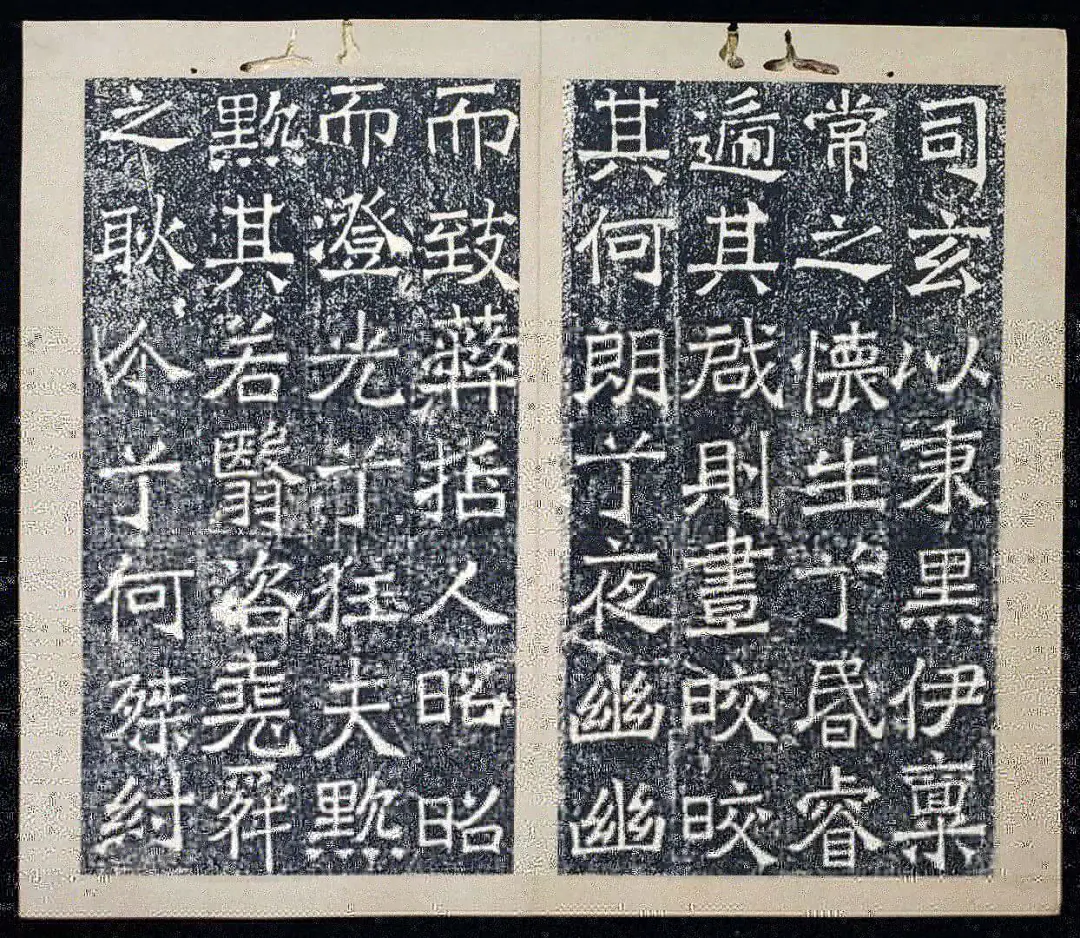 司玄以秉黑伊稟
常之懷生兮昏睿
遞其啟則晝皎皎
其何朗兮夜幽幽
而致蔽哲人昭昭
而澄光兮狂夫默
默其若翳咨堯舜
之耿介兮何桀紂